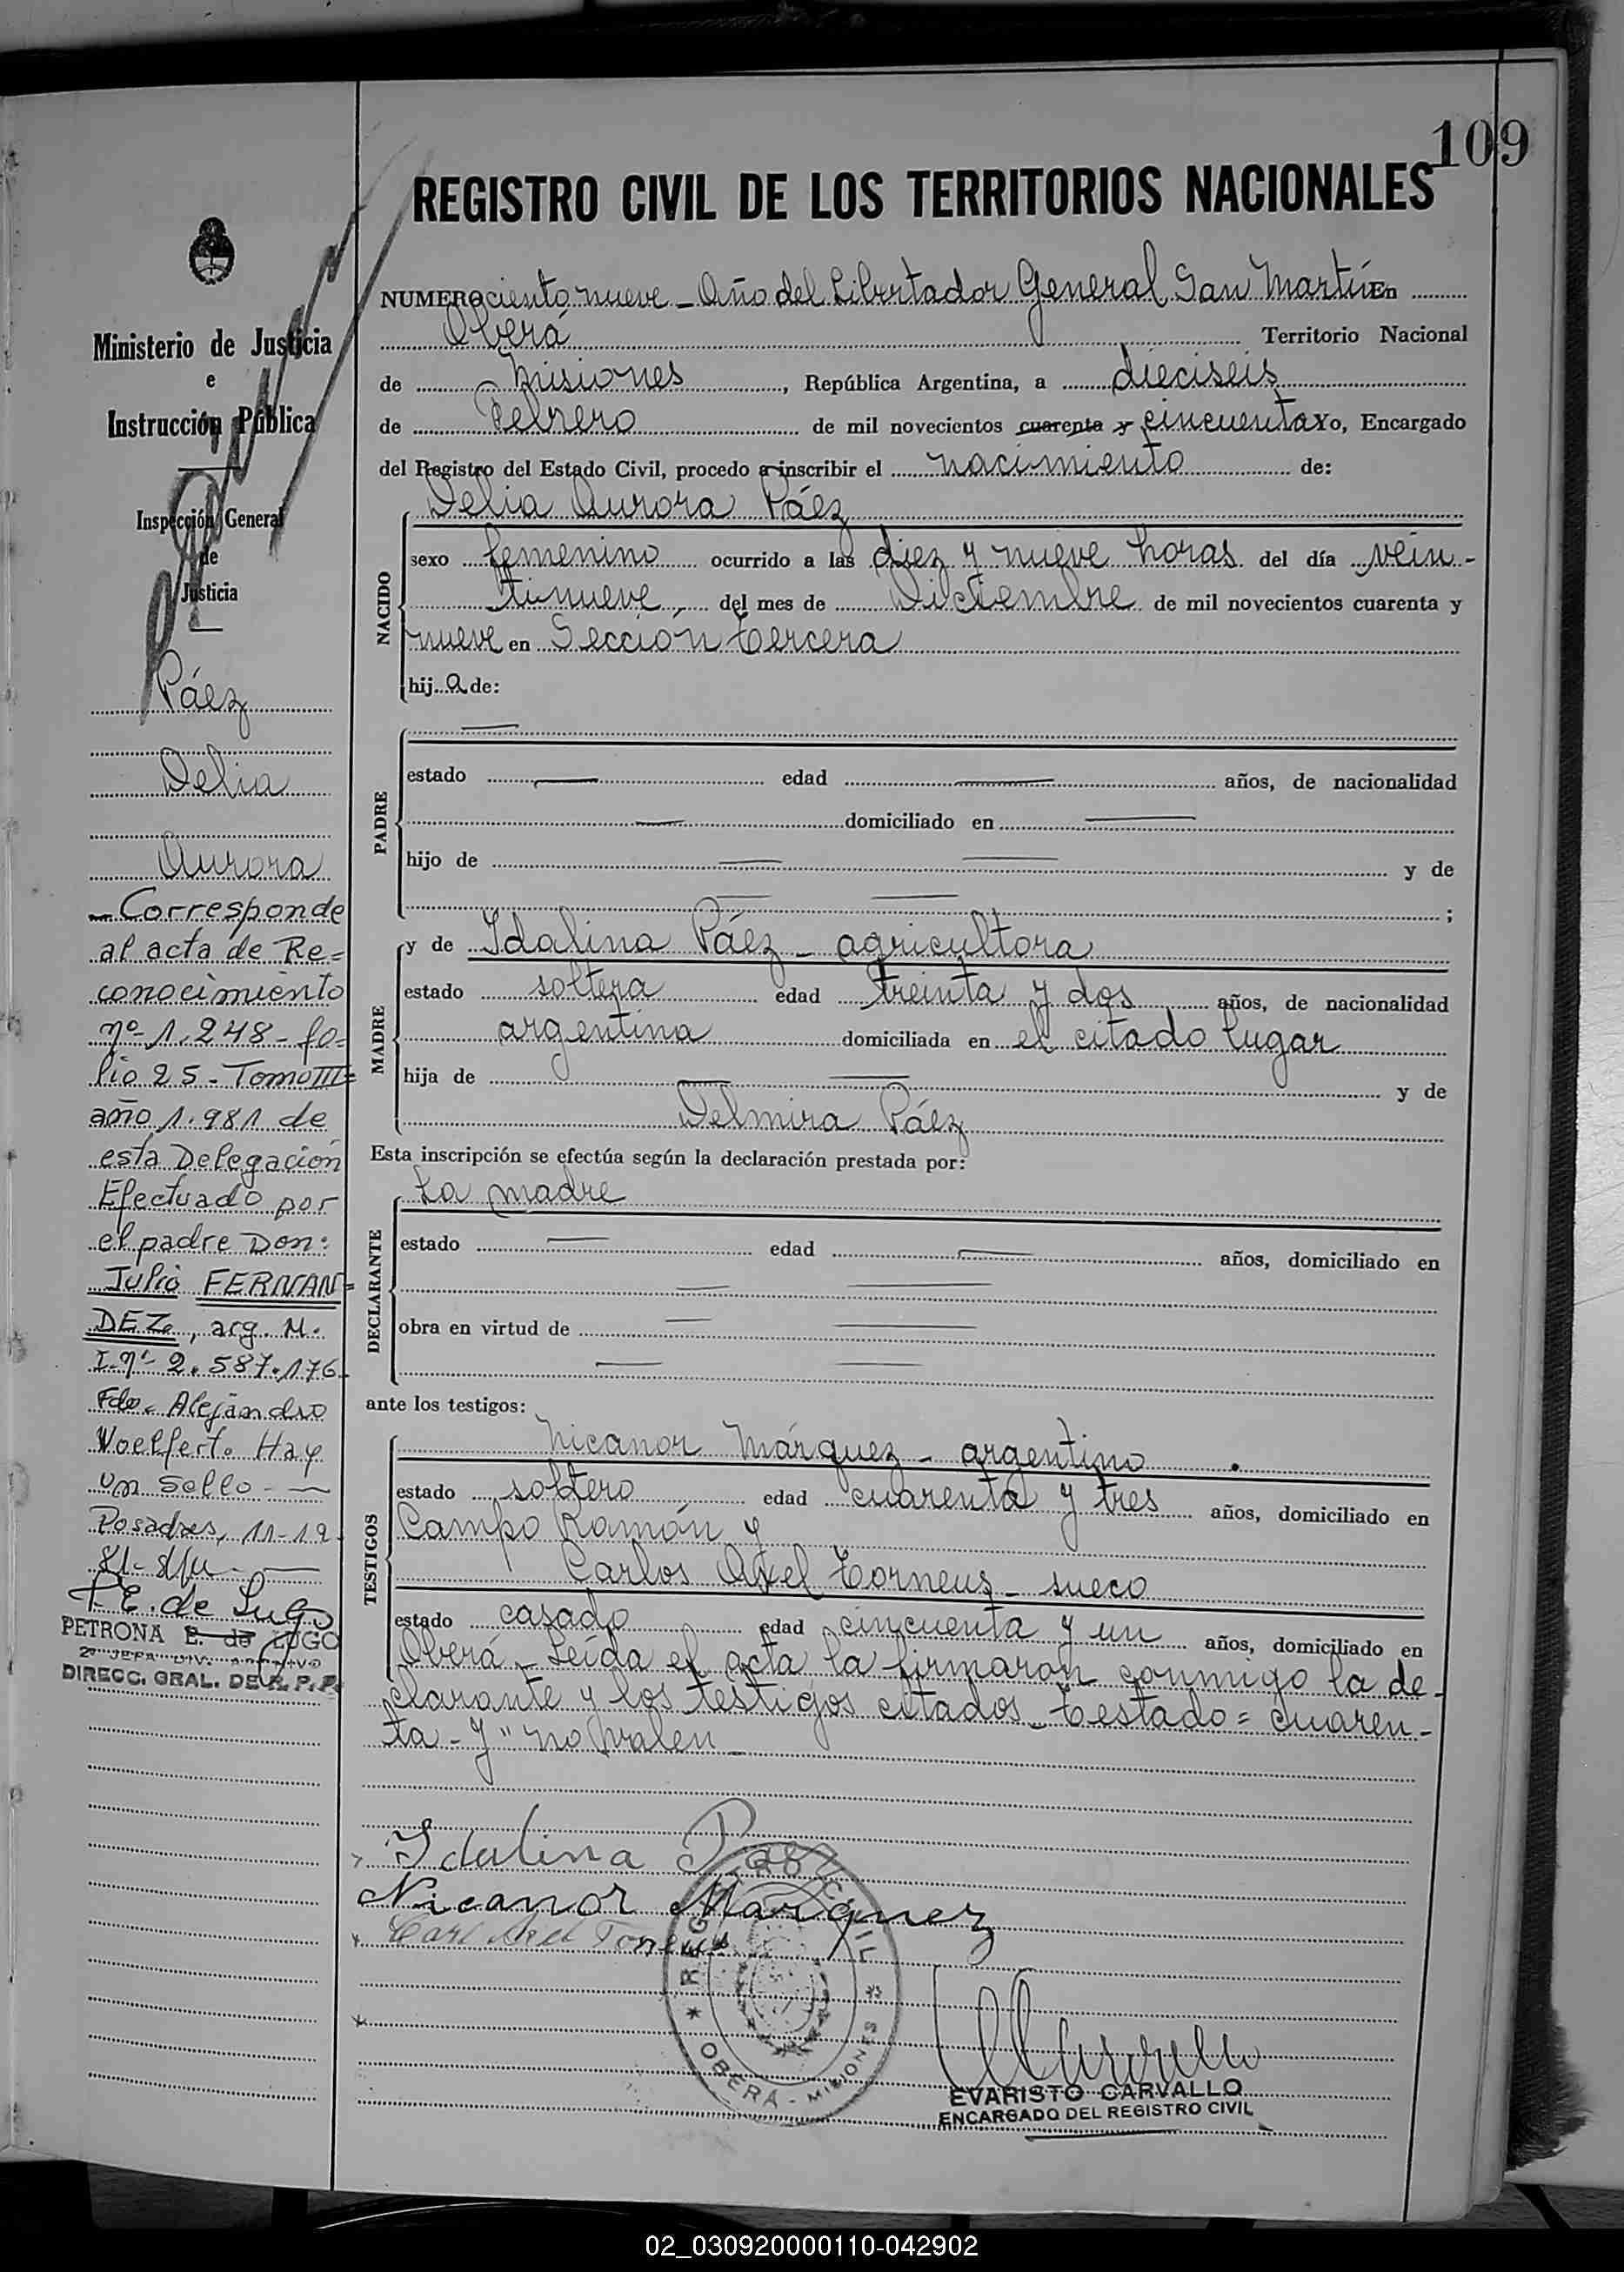 109
REGISTRO CIVIL DE LOS TERRITORIOS NACIONALES
NUMERO ciento nueve _ Año del Libertador General San Martín En
Oberá Territorio Nacional
de Misiones, República Argentina, a dieciseis
de Febrero de mil novecientos cuarenta y cincuenta Yo, Encargado
del Registro del Estado Civil, procedo a inscribir el nacimiento de:
NACIDO
Delia Aurora Páez
sexo femenino ocurrido a las diez y nueve horas del día vein-
tinueve, del mes de Diciembre de mil novecientos cuarenta y
nueve en Sección tercera
hij a de:
PADRE
estado edad años, de nacionalidad
domiciliado en
hijo de y de
;
MADRE
y de Idalina Páez - agricultora
estado soltera edad treinta y dos años, de nacionalidad
argentina domiciliada en el citado lugar
hija de y de
Delmira Páez
Esta inscripción se efectúa según la declaración prestada por:
DECLARANTE
La madre
estado edad años, domiciliado en
obra en virtud de
ante los testigos:
TESTIGOS
Nicanor Márquez - argentino
estado soltero edad cuarenta y tres años, domiciliado en
Campo Ramón y
Carlos Axel Torneus - sueco
estado casado edad cincuenta y un años, domiciliado en
Oberá - Leída el acta la firmaron conmigo la de-
clarante y los testigos citados - testado = cuaren-
ta - y" no valen -
Idalina
Nicanor Marquez
REGISTRO CIVIL
* OBERÁ - MISIONES *
EVARISTO CARVALLO
ENCARGADO DEL REGISTRO CIVIL
Ministerio de Justicia
e
Instrucción Pública
Inspección General
de
Justicia
Páez
Delia
Aurora
- Corresponde
al acta de Re=
conocimiento
nº 1.248 - fo=
lio 25 - Tomo III=
año 1.981 de
esta Delegación
Efectuado por
el padre Don:
Julio FERNAN=
DEZ, arg. M.
I. nº 2.587.176.
Fdo. Alejandro
Woelfert. Hay
un sello -
Posadas, 11-12
81-
P. E. de Lugo
PETRONA E. de LUGO
2º JEFA DIV. ARCHIVO
DIRECC. GRAL. DEL R. P. P.
02_030920000110-042902